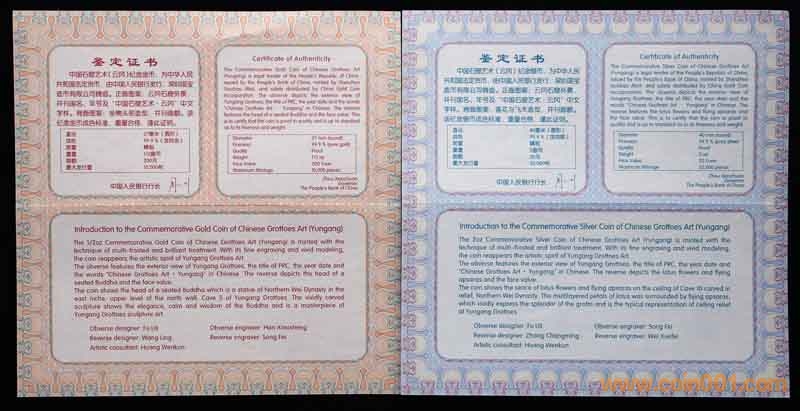 鉴定证书
中国石窟艺术（云冈）纪念金币，为中华人民
共和国法定货币，由中国人民银行发行，深圳国宝
造币有限公司铸造。正面图案：云冈石窟外景，
并刊国名、年号及“中国石窟艺术·云冈”中文
字样。背面图案：坐佛头部造型，并刊面额。该
纪念金币成色标准，重量合格，谨此证明。
直径 27毫米（圆形）
成色 99.9％（含纯金）
质量 精制
重量 1/2盎司
面额 200元
最大发行量 10,000枚
中国人民银行行长
Certificate of Authenticity
The Commemorative Gold Coin of Chinese Grottoes Art
(Yungang) is legal tender of the People's Republic of China,
issued by the People's Bank of China, minted by Shenzhen
Guobao Mint, and solely distributed by China Gold Coin
Incorporation. The obverse depicts the exterior view of
Yungang Grottoes, the title of PRC, the year date and the words
"Chinese Grottoes Art · Yungang" in Chinese. The reverse
features the head of a seated Buddha and the face value. This
is to certify that the coin is proof in quality and is up to standard
as to its fineness and weight.
Diameter 27 mm (round)
Fineness 99.9 % (pure gold)
Quality Proof
Weight 1/2 oz
Face Value 200 Yuan
Maximum Mintage 10,000 pieces
Zhou Xiaochuan
Governor
The People's Bank of China
Introduction to the Commemorative Gold Coin of Chinese Grottoes Art (Yungang)
The 1/2oz Commemorative Gold Coin of Chinese Grottoes Art (Yungang) is minted with the
technique of multi-frosted and brilliant treatment. With its fine engraving and vivid modeling,
the coin reappears the artistic spirit of Yungang Grottoes Art.
The obverse features the exterior view of Yungang Grottoes, the title of PRC, the year date and
the words "Chinese Grottoes Art · Yungang" in Chinese. The reverse depicts the head of a
seated Buddha and the face value.
The coin shows the head of a seated Buddha which is a statue of Northern Wei Dynasty in the
east niche, upper level of the north wall, Cave 5 of Yungang Grottoes. The vividly carved
sculpture shows the elegance, calm and wisdom of the Buddha and is a masterpiece of
Yungang Grottoes sculpture art.
Obverse designer: Fu Lili Obverse engraver: Han Xiaosheng
Reverse designer: Wang Ling Reverse engraver: Song Fei
Artistic consultant: Huang Wenkun
鉴定证书
中国石窟艺术（云冈）纪念银币，为中华人民
共和国法定货币，由中国人民银行发行，深圳国宝
造币有限公司铸造。正面图案：云冈石窟外景，
并刊国名、年号及“中国石窟艺术·云冈”中文
字样。背面图案：莲花与飞天造型，并刊面额。
该纪念银币成色标准，重量合格，谨此证明。
直径 40毫米（圆形）
成色 99.9％（含纯银）
质量 精制
重量 2盎司
中国人民银行行长
Certificate of Authenticity
The Commemorative Silver Coin of Chinese Grottoes Art
(Yungang) is legal tender of the People's Republic of China,
issued by the People's Bank of China, minted by Shenzhen
Guobao Mint, and solely distributed by China Gold Coin
Incorporation. The obverse depicts the exterior view of
Yungang Grottoes, the title of PRC, the year date and the
words "Chinese Grottoes Art · Yungang" in Chinese. The
reverse features the lotus flowers and flying apsaras and
the face value. This is to certify that the coin is proof in
quality and is up to standard as to its fineness and weight.
Diameter 40 mm (round)
Fineness 99.9 % (pure silver)
Quality Proof
Weight 2 oz
Face Value
Maximum Mintage
Zhou Xiaochuan
Governor
The People's Bank of China
Introduction to the Commemorative Silver Coin of Chinese Grottoes Art (Yungang)
The 2oz Commemorative Silver Coin of Chinese Grottoes Art (Yungang) is minted with the
technique of multi-frosted and brilliant treatment. With its fine engraving and vivid modeling,
the coin reappears the artistic spirit of Yungang Grottoes Art.
The obverse features the exterior view of Yungang Grottoes, the title of PRC, the year date and
"Chinese Grottoes Art · Yungang" in Chinese. The reverse depicts the lotus flowers and flying
apsaras and the face value.
The coin shows the scene of lotus flowers and flying apsaras on the ceiling of Cave 10 carved in
relief, Northern Wei Dynasty. The multilayered petals of lotus was surrounded by flying apsaras,
which vividly express the splendor of the grotto and is the typical representation of ceiling relief
at Yungang Grottoes.
Obverse designer: Fu Lili Obverse engraver: Song Fei
Reverse designer: Zhang Changming Reverse engraver: Wei Xuefei
Artistic consultant: Huang Wenkun